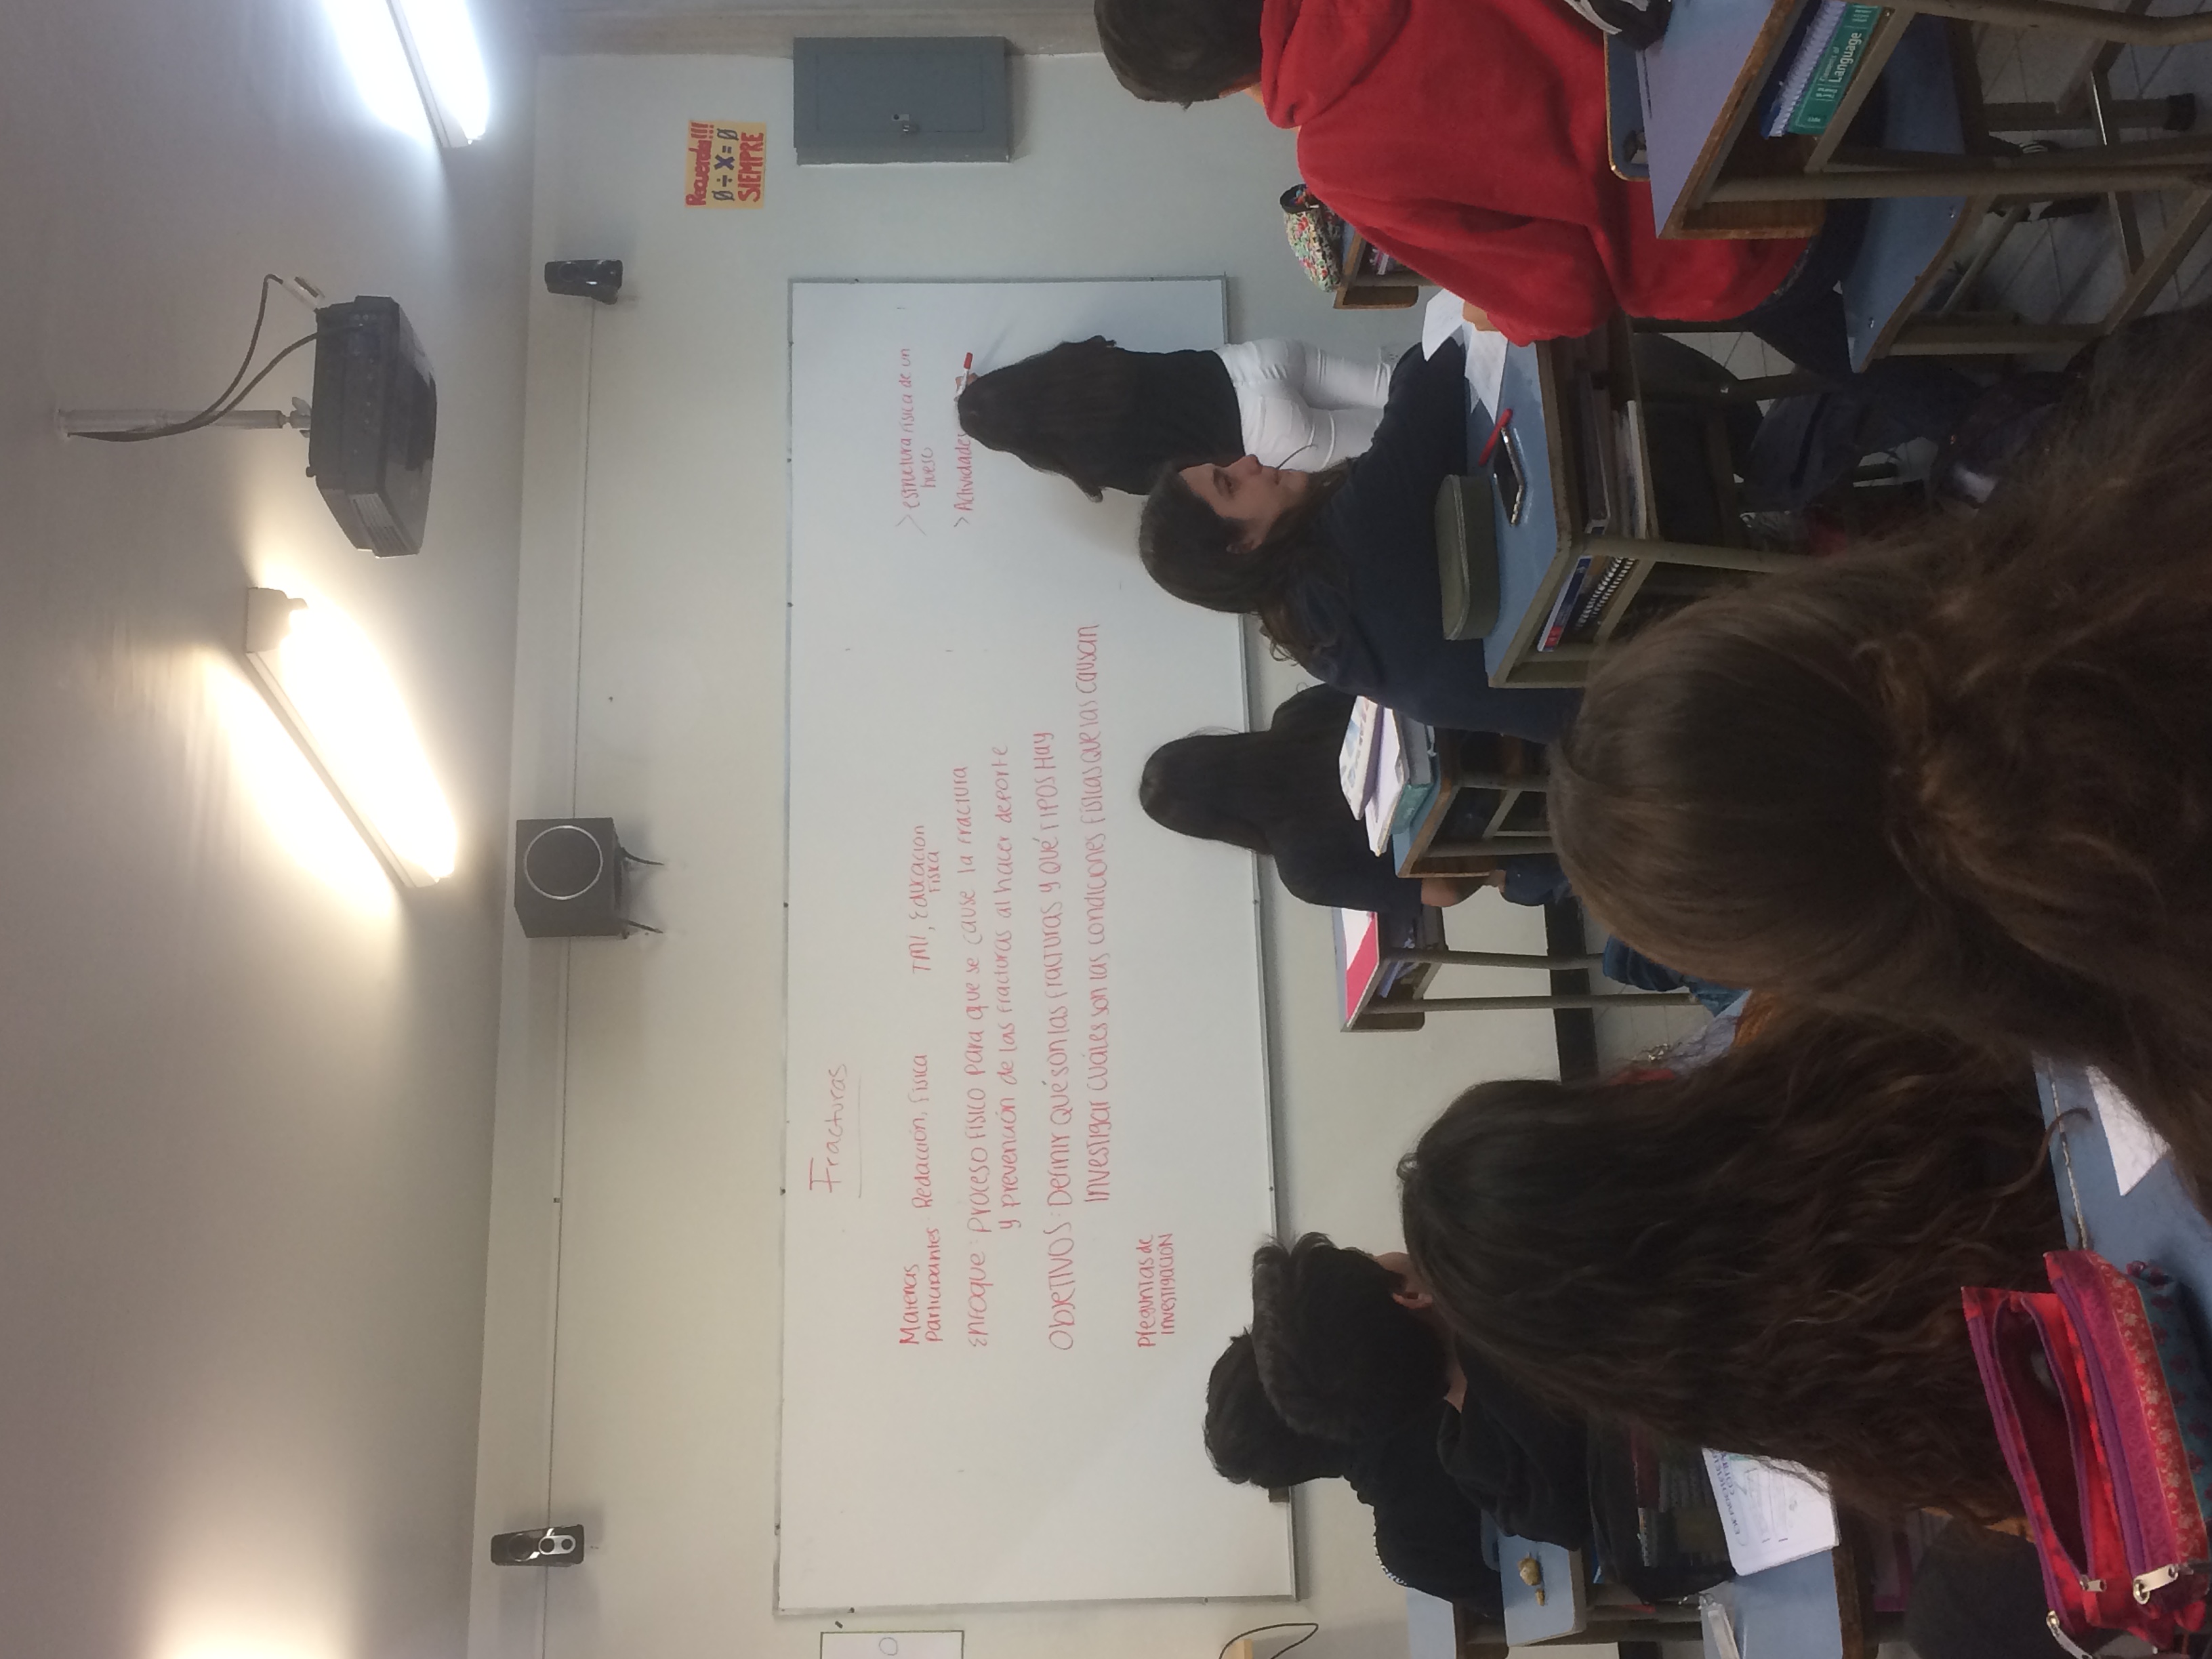 Recuerda!!!
0 ÷ X = 0
SIEMPRE
Fracturas
Materias
Participantes: Redacción, Física TMI, Educación
Física
Enfoque: Proceso físico para que se cause la fractura
y prevención de las fracturas al hacer deporte
Objetivos: Definir qué son las fracturas y qué tipos hay
Investigar cuáles son las condiciones físicas que las causan
Preguntas de
investigación
> estructura física de un
hueso
> Actividades
Elements of
Language